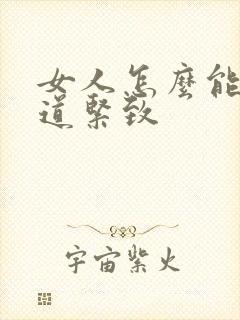 女人怎麼能
道緊致
宇宙紫火